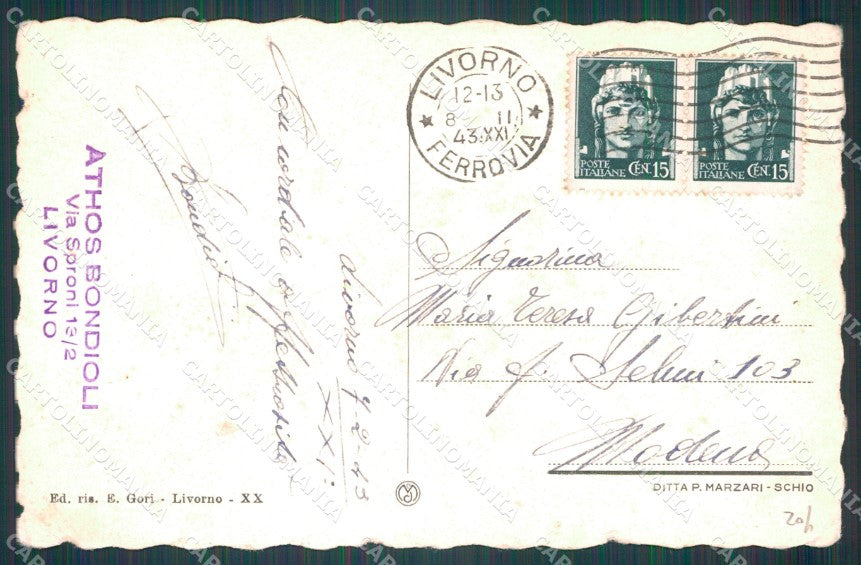 ATHOS BONDIOLI
Via Sproni 13/2
LIVORNO
Con cordiale
Bondioli
Livorno 7-2-43
XXI°
LIVORNO
12-13
8 II
43.XXI
FERROVIA
POSTE ITALIANE CEN. 15
POSTE ITALIANE CEN. 15
Signorina
Maria Teresa Gibertini
Via F. Selmi 103
Modena
DITTA P. MARZARI - SCHIO
Ed. ris. E. Gori - Livorno - XX
CARTOLINOMANIA